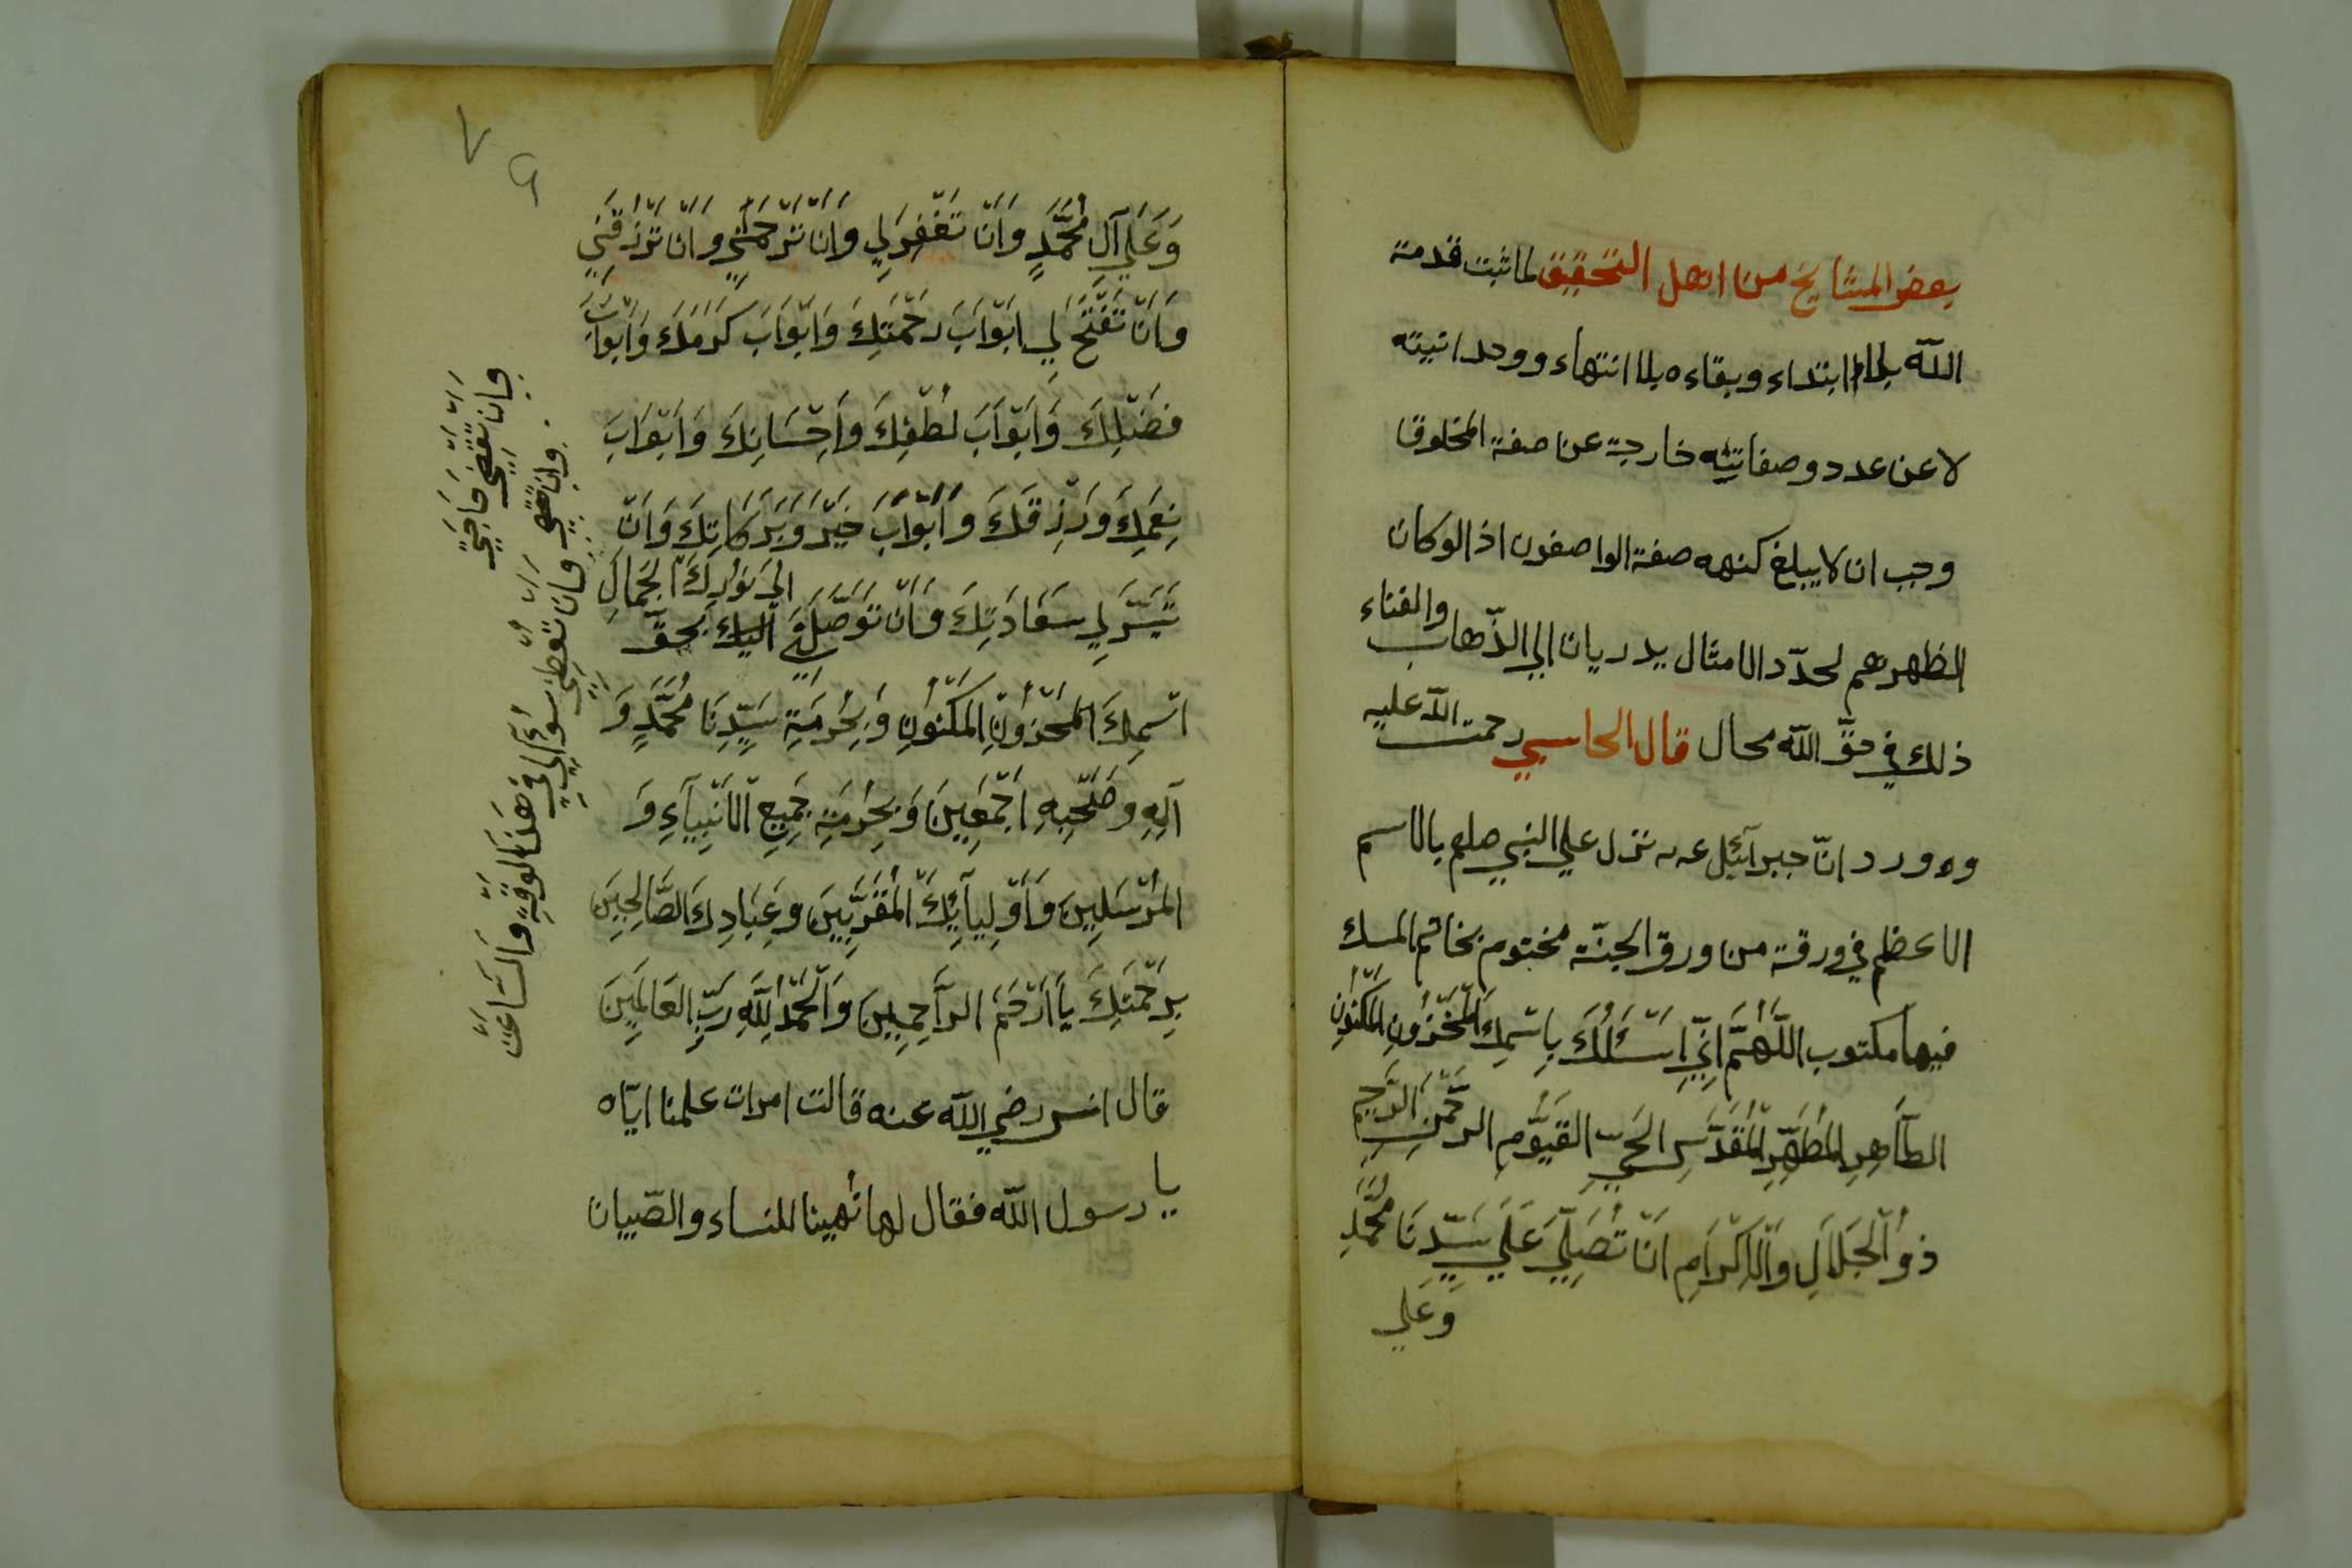 بعض المشايخ من اهل التحقيق لما ثبت قدمة
الله بلا ابتداء وبقاءه بلا انتهاء ووحدانيته
لا عن عدد وصفاتيه خارجة عن صفة المخلوق
وجب ان لا يبلغ كنهه صفة الواصفون اذ الو كان
لحدّد الامثال يدريان الي الذّهاب والفناء
ذلك في حقّ الله محال قال الحاسبي رحمت الله عليه
وه ورد انّ جبرآئيل عـ‍ه نزل علي النبي صلعم بالاسم
الاعظم في ورقة من ورق الجنّة مختوم بخاتم المسك
فيها مكتوب اللَّهُمَّ اَنِّي اَسْئَلُكَ بِاسْمِكَ الْمَخْزُونِ الْمَكْنُونِ
الطَّاهِرِ الْمُطَهَّرِ الْمُقَدَّسِ الْحَيِّ القَيُّومِ الرَّحْمٰنِ الرَّحِيمِ
ذوُ الْجَلاَلِ وَالْاِكْرَامِ انَْ تُصَلِّيَ عَلَي سَيِّدِنَا مُحَمَّدٍ
وَعَلي
٧
٩
وَعَلَي آلِ مُحَمَّدٍ وَاَنْ تَغْفِرَ لِي وَاَنْ تَرْحَمَنِي وَاَنْ تَرْزُقَنِي
وَاَنْ تَفْتَحَ لِي ابَْوَابَ رَحْمَتِكَ وَابَْوَابَ كَرَمَكَ وَابَْوَابَ
فَضْلِكَ وَابَْوَابَ لُطْفِكَ وَاِحْسَانِكَ وَابَْوَابَ
نِعَمِكَ وَرِزْقَكَ وَأبْوَابَ خَيْرَ وَبَرَكَاتِكَ وَاَنْ
تَيَسَّرَ لِي سَعَادَتِكَ وَاَنْ تَوَصَّلَنِي اِلَيْكَ بَحَقِّ
اِلَي نوُرِكَ الجَمَالِ
اسْمِكَ الْمَخْزُونِ الْمَكْنُونِ وَبِحُرْمَةِ سَيِّدِنَا مُحَمَّدٍ وَ
آلِهِ وَصَحْبِهِ اَجْمَعِينَ وَبِحُرْمَةِ جَمِيعِ الْاَنْبِيَآءِ وَ
الْمُرْسَلِينَ وَاَوْلِيآئِكَ الْمُقَرَّبِينَ وَعِبَادِكَ الصَّالِحِينَ
بِرَحْمَتِكَ يَا اَرْحَمَ الرَّاحِمِينَ وَالْحَمْدُ لِلَّهِ رَبِّ العَالَمِينَ
قال انس رضي الله عنه قالت امرات علمنا ايّاه
يا رسول الله فقال لها نُهينا للنساء والصّبيان
وَاَنْ تُعْطِيَ سُؤَآلِي فِي هَذَا لْوَقْتِ وَالسَّاعَةَ